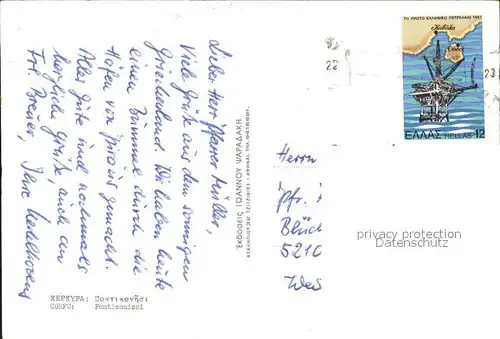 Lieber Herr Pfarrer Müller,
Viele Grüße aus dem sonnigen
Griechenland. Wir haben heute
einen Bummel durch die
Häfen von Piräus gemacht.
Alles Gute und nochmals
herzliche Grüße, auch an
Frl. Breuer, Ihre
ΚΕΡΚΥΡΑ: Ποντικονήσι
CORFU: Ponticonissi
ΕΚΔΟΣΕΙΣ ΙΩΑΝΝΟΥ ΨΑΡΑΔΑΚΗ
ΤΟ ΠΡΩΤΟ ΕΛΛΗΝΙΚΟ ΠΕΤΡΕΛΑΙΟ 1981
ΕΛΛΑΣ HELLAS 12
22
23
Herrn
Pfr.
5210
privacy protection
Datenschutz